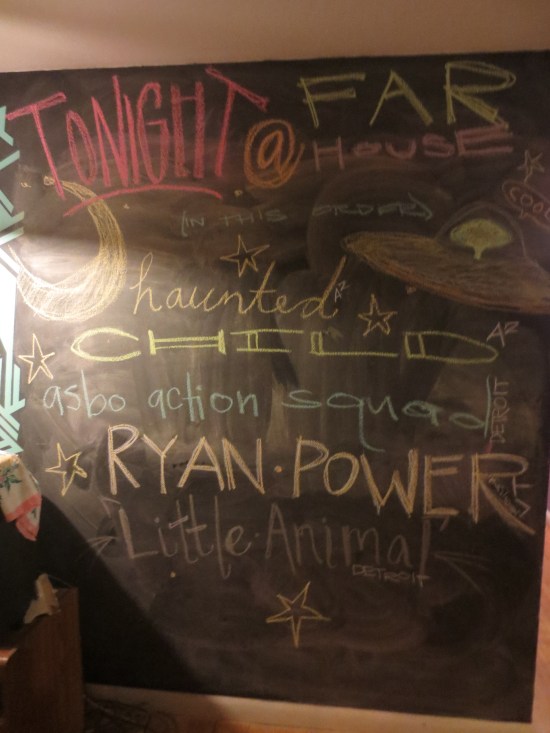 TONIGHT @ FAR
HOUSE
COOL
(IN THIS ORDER)
haunted A2
CHILD A2
asbo action squad DETROIT
RYAN · POWER
Little Animal
DETROIT